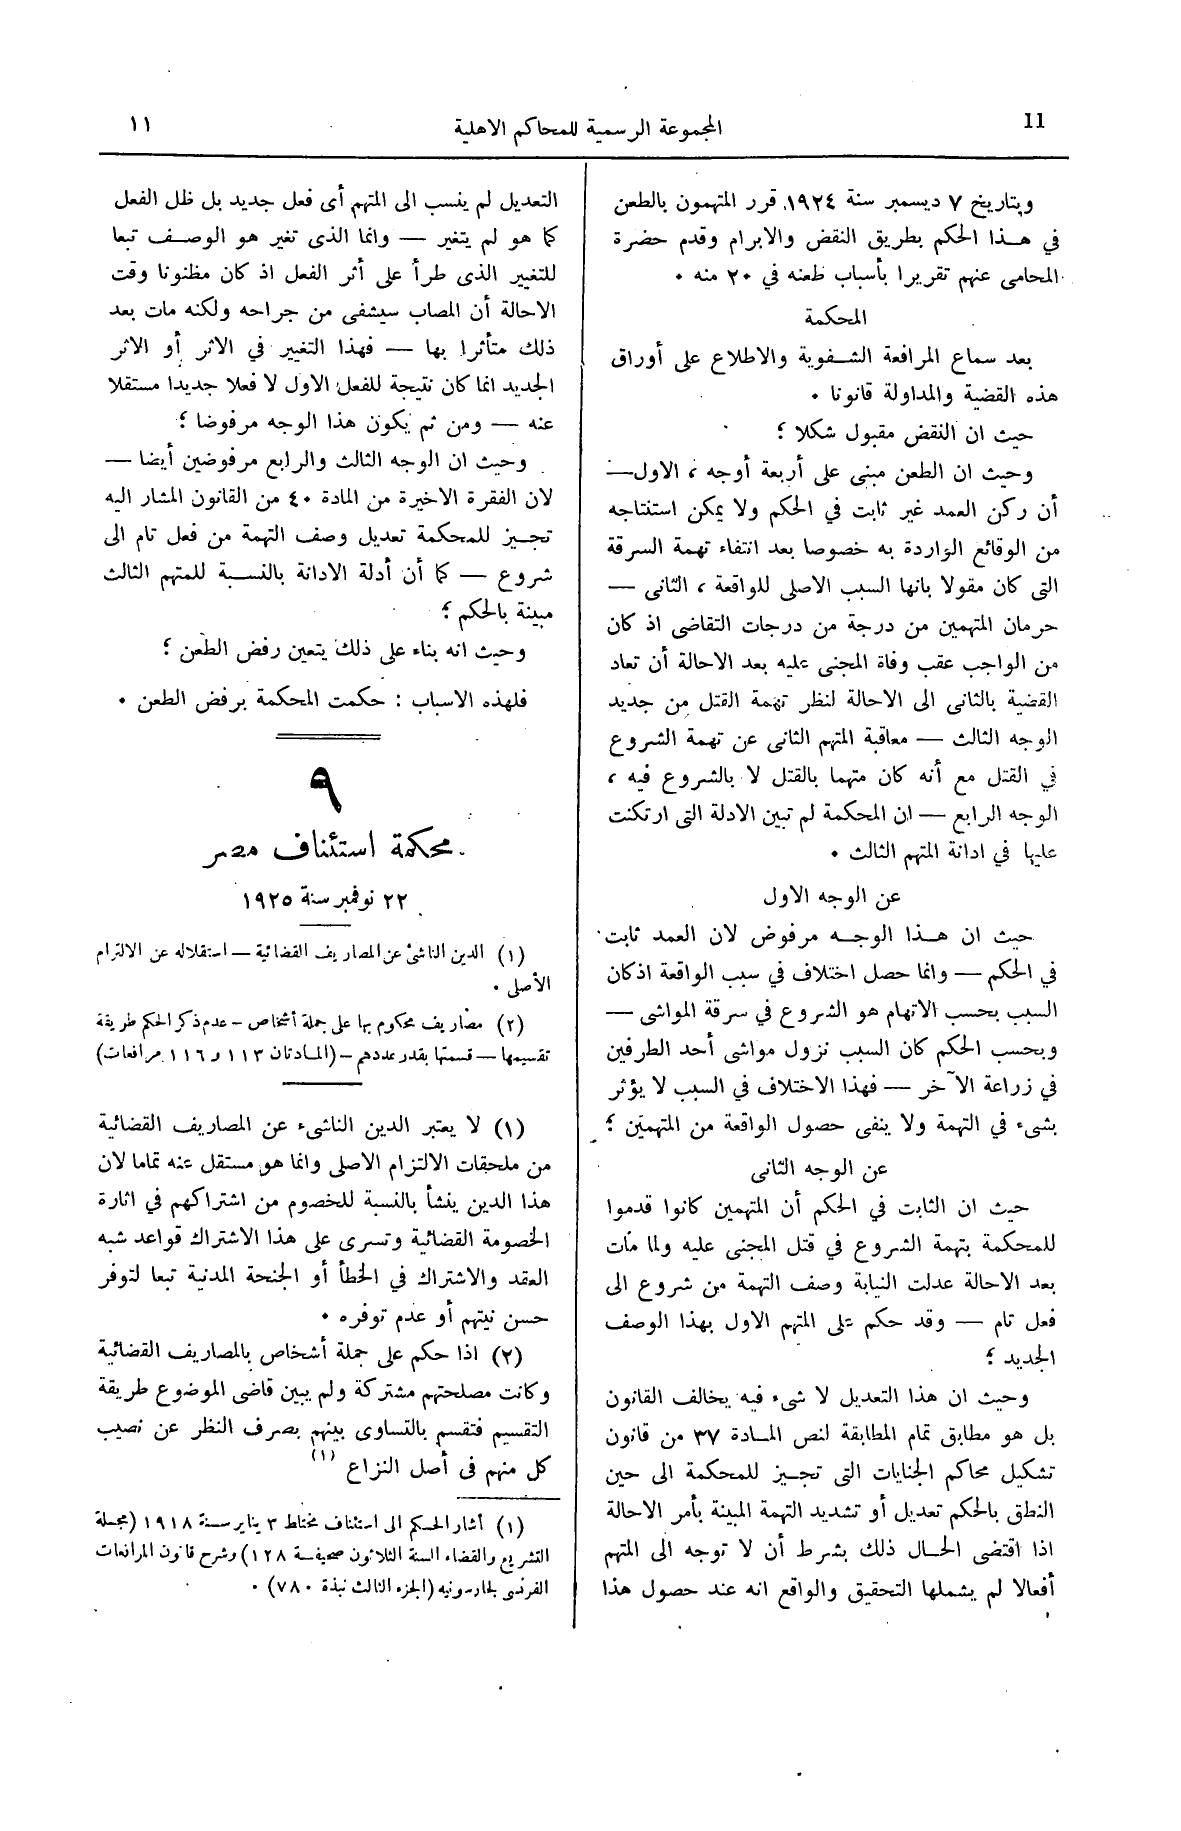 11
المجموعة الرسمية للمحاكم الاهلية
١١
وبتاريخ ٧ ديسمبر سنة ١٩٢٤ قرر المتهمون بالطعن
في هـذا الحكم بطريق النقض والابرام وقدم حضرة
المحامى عنهم تقريرا بأسباب طعنه في ٢٠ منه ٠
المحكمة
بعد سماع المرافعة الشـفوية والاطلاع على أوراق
هذه القضية والمداولة قانونا ٠
حيث ان النقض مقبول شكلا ؛
وحيث ان الطعن مبنى على أربعة أوجه ، الاول —
أن ركن العمد غير ثابت في الحكم ولا يمكن استنتاجه
من الوقائع الواردة به خصوصا بعد انتفاء تهمة السرقة
التى كان مقولا بانها السبب الاصلى للواقعة ، الثانى —
حرمان المتهمين من درجة من درجات التقاضى اذ كان
من الواجب عقب وفاة المجنى عليه بعد الاحالة أن تعاد
القضية بالثانى الى الاحالة لنظر تهمة القتل من جديد
الوجه الثالث — معاقبة المتهم الثانى عن تهمة الشروع
في القتل مع أنه كان متهما بالقتل لا بالشروع فيه ،
الوجه الرابع — ان المحكمة لم تبين الادلة التى ارتكنت
عليها في ادانة المتهم الثالث ٠
عن الوجه الاول
حيث ان هـذا الوجـه مرفوض لان العمد ثابت
في الحكم — وانما حصل اختلاف في سبب الواقعة اذكان
السبب بحسب الاتهام هو الشروع في سرقة المواشى —
وبحسب الحكم كان السبب نزول مواشى أحد الطرفين
في زراعة الآخر — فهذا الاختلاف في السبب لا يؤثر
بشىء في التهمة ولا ينفى حصول الواقعة من المتهمين ؛
عن الوجه الثانى
حيث ان الثابت في الحكم أن المتهمين كانوا قدموا
للمحكمة بتهمة الشروع في قتل المجنى عليه ولما مات
بعد الاحالة عدلت النيابة وصف التهمة من شروع الى
فعل تام — وقد حكم على المتهم الاول بهذا الوصف
الجديد ؛
وحيث ان هذا التعديل لا شىء فيه يخالف القانون
بل هو مطابق تمام المطابقة لنص المـادة ٣٧ من قانون
تشكيل محاكم الجنايات التى تجـيز للمحكمة الى حين
النطق بالحكم تعديل أو تشديد التهمة المبينة بأمر الاحالة
اذا اقتضى الحـال ذلك بشرط أن لا توجه الى المتهم
أفعالا لم يشملها التحقيق والواقع انه عند حصول هذا
التعديل لم ينسب الى المتهم أى فعل جديد بل ظل الفعل
كما هو لم يتغير — وانما الذى تغير هو الوصـف تبعا
للتغيير الذى طرأ على أثر الفعل اذ كان مظنونا وقت
الاحالة أن المصاب سيشفى من جراحه ولكنه مات بعد
ذلك متأثرا بها — فهذا التغيير في الاثر أو الاثر
الجديد انما كان نتيجة للفعل الاول لا فعلا جديدا مستقلا
عنه — ومن ثم يكون هذا الوجه مرفوضا ؛
وحيث ان الوجه الثالث والرابع مرفوضين أيضا —
لان الفقرة الاخيرة من المادة ٤٠ من القانون المشار اليه
تجـيز للمحكمة تعديل وصف التهمة من فعل تام الى
شروع — كما أن أدلة الادانة بالنسـبة للمتهم الثالث
مبينة بالحكم ؛
وحيث انه بناء على ذلك يتعين رفض الطعن ؛
فلهذه الاسباب : حكمت المحكمة برفض الطعن ٠
٩
محكمة استئناف مصر
٢٢ نوفمبر سنة ١٩٢٥
(١) الدين الناشئ عن المصاريف القضائية — استقلاله عن الالتزام
الأصلى ٠
(٢) مصاريف محكوم بها على جملة أشخاص – عدم ذكر الحكم طريقة
تقسيمها — قسمتها بقدر عددهم – (المـادتان ١١٣ و ١١٦ مرافعات)
(١) لا يعتبر الدين الناشىء عن المصاريف القضائية
من ملحقات الالتزام الاصلى وانما هو مستقل عنه تماما لان
هذا الدين ينشأ بالنسبة للخصوم من اشتراكهم في اثارة
الخصومة القضائية وتسرى على هذا الاشتراك قواعد شبه
العقد والاشتراك في الخطأ أو الجنحة المدنية تبعا لتوفر
حسن نيتهم أو عدم توفره ٠
(٢) اذا حكم على جملة أشخاص بالمصاريف القضائية
وكانت مصلحتهم مشتركة ولم يبين قاضى الموضوع طريقة
التقسيم فتقسم بالتساوى بينهم بصرف النظر عن نصيب
كل منهم فى أصل النزاع (١)
(١) أشار الحـكم الى استئناف مختلط ٣ يناير سـنة ١٩١٨ (مجـلة
التشريع والقضاء السنة الثلاثون صحيفـة ١٢٨) وشرح قانون المرافعات
الفرنسى لجارسونيه (الجزء الثالث نبذة ٧٨٠) ٠